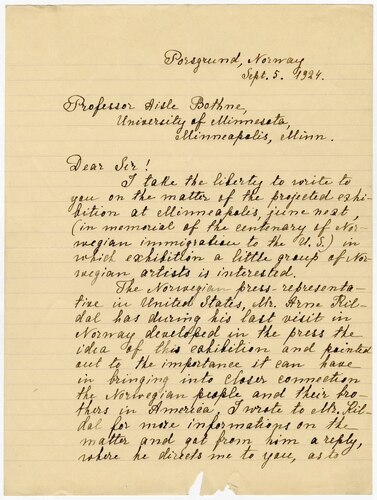 Porsgrund, Norway
Sept. 5. 1924.
Professor Aisle Bothne,
University of Minnesota,
Minneapolis, Minn.
Dear Sir!
I take the liberty to write to
you on the matter of the projected exhi-
bition at Minneapolis, june next,
(in memorial of the centenary of Nor-
wegian immigration to the U. S.) in
which exhibition a little group of Nor-
wegian artists is interested.
The Norwegian press-representa-
tive in United States, Mr. Arne Kil-
dal has during his last visit in
Norway developed in the press the
idea of this exhibition and pointed
out to the importance it can have
in bringing into closer connection
the Norwegian people and their bro-
thers in America. I wrote to Mr. Kil-
dal for more informations on the
matter and got from him a reply,
where he directs me to you, as to